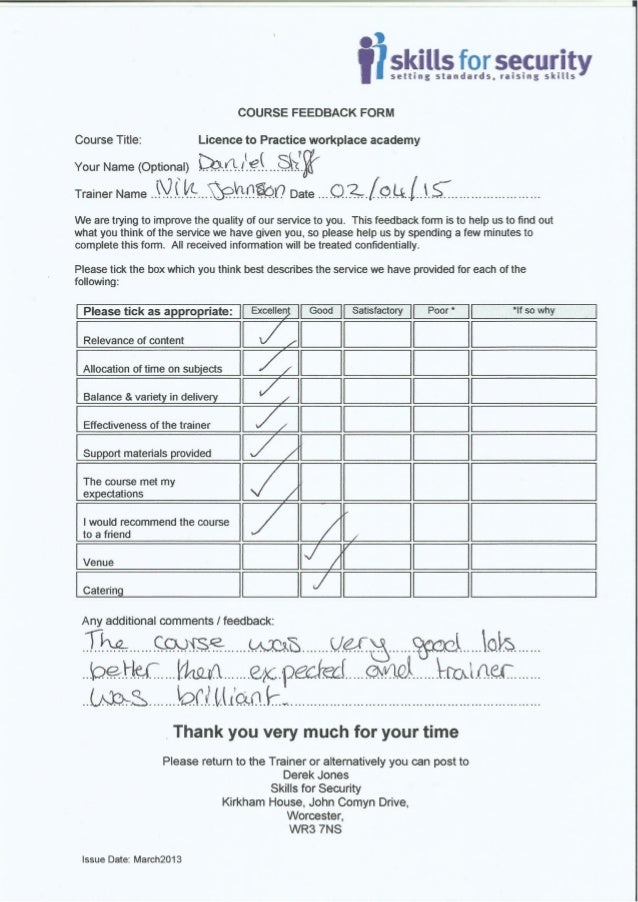 skills for security
setting standards, raising skills
COURSE FEEDBACK FORM
Course Title: Licence to Practice workplace academy
Your Name (Optional) Daniel Stiff
Trainer Name Nik Johnson Date 02/04/15
We are trying to improve the quality of our service to you. This feedback form is to help us to find out
what you think of the service we have given you, so please help us by spending a few minutes to
complete this form. All received information will be treated confidentially.
Please tick the box which you think best describes the service we have provided for each of the
following:
Please tick as appropriate: Excellent Good Satisfactory Poor * *If so why
Relevance of content ✓
Allocation of time on subjects ✓
Balance & variety in delivery ✓
Effectiveness of the trainer ✓
Support materials provided ✓
The course met my
expectations ✓
I would recommend the course
to a friend ✓
Venue ✓
Catering ✓
Any additional comments / feedback:
The course was very good lots
better then expected and trainer
was brilliant.
Thank you very much for your time
Please return to the Trainer or alternatively you can post to
Derek Jones
Skills for Security
Kirkham House, John Comyn Drive,
Worcester,
WR3 7NS
Issue Date: March2013